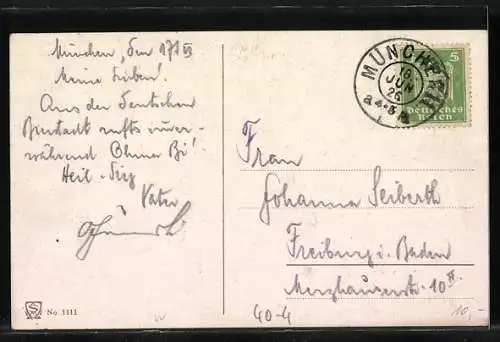 München, den 17/8 VI
Meine Lieben!
Aus der Deutschen
Bierstadt rufts immer-
während
Heil - Sieg
Vater
No. 1111
MÜNCHEN
JUN
26
5
Deutsches
Reich
Frau
Johanna Seiberth
Freiburg i. Baden
Merzhauserstr. 10 II
40-4
10,-